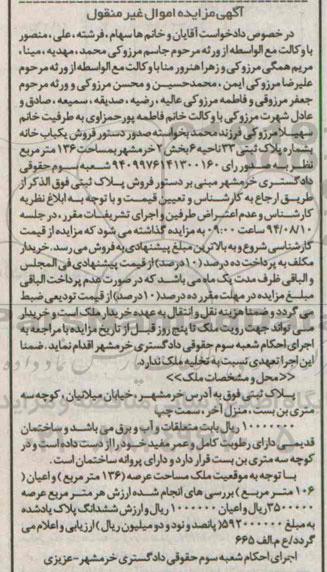 آگهی مزایده اموال غیر منقول
در خصوص دادخواست آقایان و خانم ها سهام، فرشته، علی، منصور
با وکالت مع الواسطه از ورثه مرحوم جاسم مرزوکی محمد، مهدیه، مینا،
مریم همگی مرزوکی و زهرا هنرور منا با وکالت مع الواسطه از ورثه مرحوم
علیرضا مرزوکی ایمن، محمدحسین و محسن مرزوکی و ورثه مرحوم
جعفر مرزوقی و فاطمه مرزوکی عالیه، رضیه، صدیقه، سمیعه، صادق و
عادل شهرت مرزوکی با وکالت خانم فاطمه پورحمزاوی به طرفیت خانم
سهیلا مرزوکی فرزند محمد بخواسته صدور دستور فروش یکباب خانه
بشماره پلاک ثبتی ۳۳ ناحیه ۶ بخش ۲ خرمشهر بمساحت ۱۳۶ متر مربع
نظر به صدور رای ۹۴۰۹۹۷۶۱۴۱۳۰۰۱۶۰ شعبه سوم حقوقی
دادگستری خرمشهر مبنی بر دستور فروش پلاک ثبتی فوق الذکر از
طریق ارجاع به کارشناس و تعیین قیمت و با توجه به ابلاغ نظریه
کارشناس و عدم اعتراض طرفین و اجرای تشریفات مقرر، در جلسه
۹۴/۰۸/۱۰ ساعت ۰۹:۰۰ به مزایده گذاشته می شود که مزایده از قیمت
کارشناسی شروع و به بالاترین مبلغ پیشنهادی به فروش می رسد. خریدار
مکلف به پرداخت ده درصد (۱۰ درصد) از قیمت پیشنهادی فی المجلس
و الباقی ظرف مدت یک ماه می باشد که در صورت عدم پرداخت الباقی
مبلغ مزایده در مهلت مقرر ده درصد (۱۰ درصد) از قیمت تودیعی ضبط
می گردد و ضمنا هزینه نقل و انتقال به عهده خریدار ملک است و خریدار
می تواند جهت رویت ملک تا پنج روز قبل از تاریخ مزایده با مراجعه به
اجرای احکام شعبه سوم حقوقی دادگستری خرمشهر اقدام نماید. ضمنا
این اجرا تعهدی نسبت به تخلیه ملک ندارد.
<<محل و مشخصات ملک>>
پلاک ثبتی فوق به آدرس خرمشهر، خیابان میلانیان، کوچه سه
متری بن بست، منزل آخر، سمت چپ
۱۰۰۰۰۰۰۰ ریال بابت متعلقات و آب و برق می باشد و ساختمان
قدیمی دارای رطوبت کامل و عمر مفید خود را از دست داده است و در
کوچه سه متری بن بست قرار دارد و دارای پروانه ساختمان است.
با توجه به موقعیت ملک مساحت عرصه (۱۳۶ متر مربع) و اعیان (
۱۰۶ متر مربع) بررسی های انجام شده ارزش هر متر مربع عرصه
۳۵۰۰۰۰۰ ریال و اعیان ۱۰۰۰۰۰۰ ریال و ارزش ششدانگ پلاک یادشده
به مبلغ ۵۹۲۰۰۰۰۰۰ (پانصد و نود و دو میلیون ریال) ارزیابی و اعلام می
گردد/ع م.الف ۶۶۵
اجرای احکام شعبه سوم حقوقی دادگستری خرمشهر-عزیزی